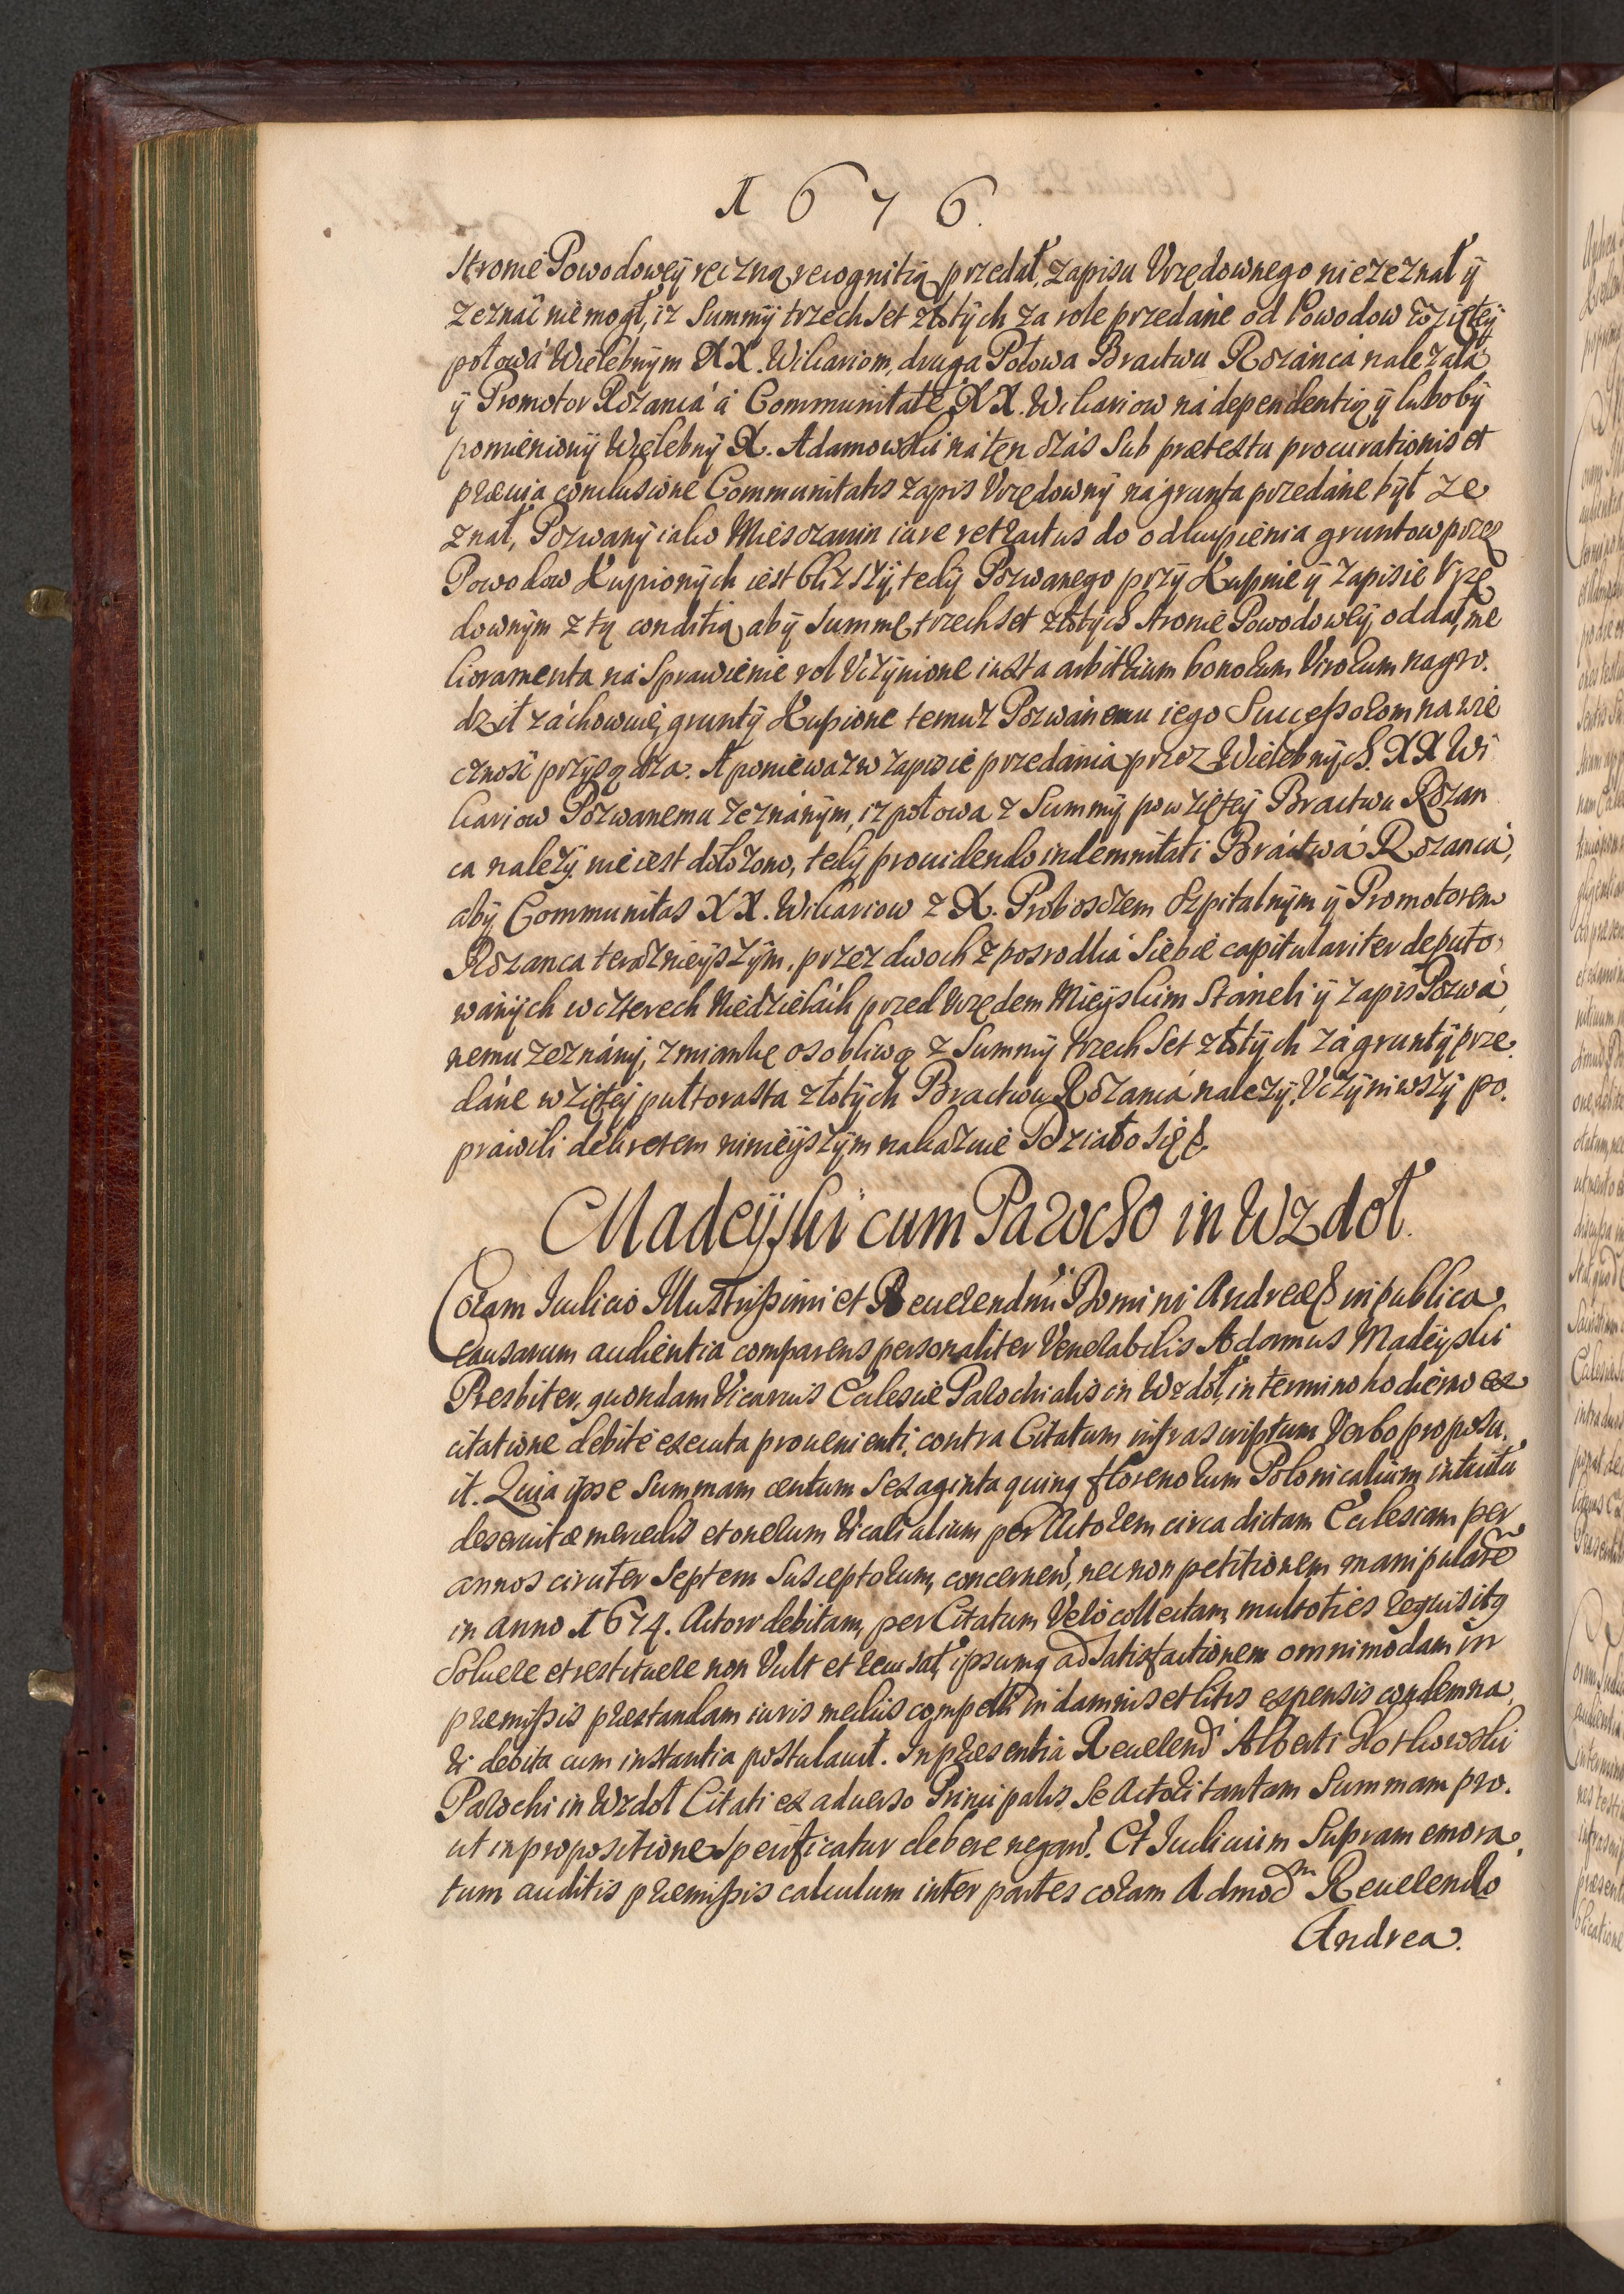 1676.
stronie Powodowey ręczną recognitią przedał, zapisu Vrzędownego nie zeznał ÿ
zeznać nie mogł, iz Summÿ trzech set złotÿch za role przedane od Powodow wziętey
połowa Wielebnÿm XX. Wikariom, druga Połowa Bractwu Rozanca nalezała,
ÿ Promotor Rozanca a Communitate XX. Wikariow na dependentią ÿ luboby
pomienionÿ Wielebnÿ X. Adamowski na ten czas sub prætextu procurationis et
præuia conclusione Communitatis zapis Vrzędownÿ na grunta przedane był ze
znał, Pozwanÿ iako Miesczanin iure retractus do odkupienia gruntow przez
Powodow Kupionÿch iest blizszÿ, tedÿ Pozwanego przÿ Kupnie ÿ zapisie Vrzę
downÿm z tą conditią abÿ Summę trzech set złotÿch stronie Powodowey oddał, me
lioramenta na sprawienie rol Vczÿnione iuxta arbitrium bonorum Virorum nagro.
dził zachowuie, gruntÿ Kupione temuz Pozwanemu iego Successorom na wie
czność przÿsądza. A poniewaz w zapisie przedania przez Wielebnÿch. XX Wi
kariow Pozwanemu zeznanÿm, iz połowa z Summÿ powziętey Bractwu Rozan
ca nalezÿ nie iest dołozono, tedÿ prouidendo indemnitati Bractwa Rozanca,
abÿ Communitas XX. Wikariow z X. Proboszczem Szpitalnÿm ÿ Promotorem
Rozanca teraznieÿszÿm, przez dwoch z posrodka siebie capitulariter deputo
wanÿch w czterech Niedzielach przed Vrzędem Mieÿskim staneli ÿ zapis Pozwa
nemu zeznanÿ, zmiankę osobliwą z Summÿ trzech set złotÿch za gruntÿ prze.
dane wziętej pułtorasta złotÿch Bractwu Rozanca nalezÿ. Vczÿniwszÿ po.
prawili dekretem ninieÿszÿm nakazuie Działo się &
Madeÿski cum Parocho in Wzdoł.
Coram Iudicio Illustrissimi et Reuerendmi Domini Andreæ & in publica
causarum audientia comparens personaliter Venerabilis Adamus Madeÿski
Presbiter, quondam Vicarius Ecclesiæ Parochialis in Wzdoł, in termino hodierno ex
citatione debite executa prouenienti, contra Citatum infrascriptum Verbo proposu.
it. Quia ipse Summam centum sexaginta quinq florenorum Polonicalium intuitu
deseruitæ mercedis et onerum Vicarialium per Actorem circa dictam Ecclesiam per
annos circiter septem susceptorum, concernen, nec non petitionem manipularem
in anno 1674. Actori debitam, per Citatum Vero collectam, multoties requisitq
soluere et restituere non Vult et recusat, ipsumq ad satisfactionem omnimodam in
præmissis præstandam iuris mediis compelli in damnis et litis expensis condemna
ri debita cum instantia postulauit. In præsentia Reuerend Alberti Slotkowski
Parochi in Wzdoł Citati ex aduerso Principalis se Actori tantam Summam pro.
ut in propositione specificatur debere negan. Et Iudicium Supramemora
tum auditis præmissis calculum inter partes coram Admodm Reuerendo
Andrea.